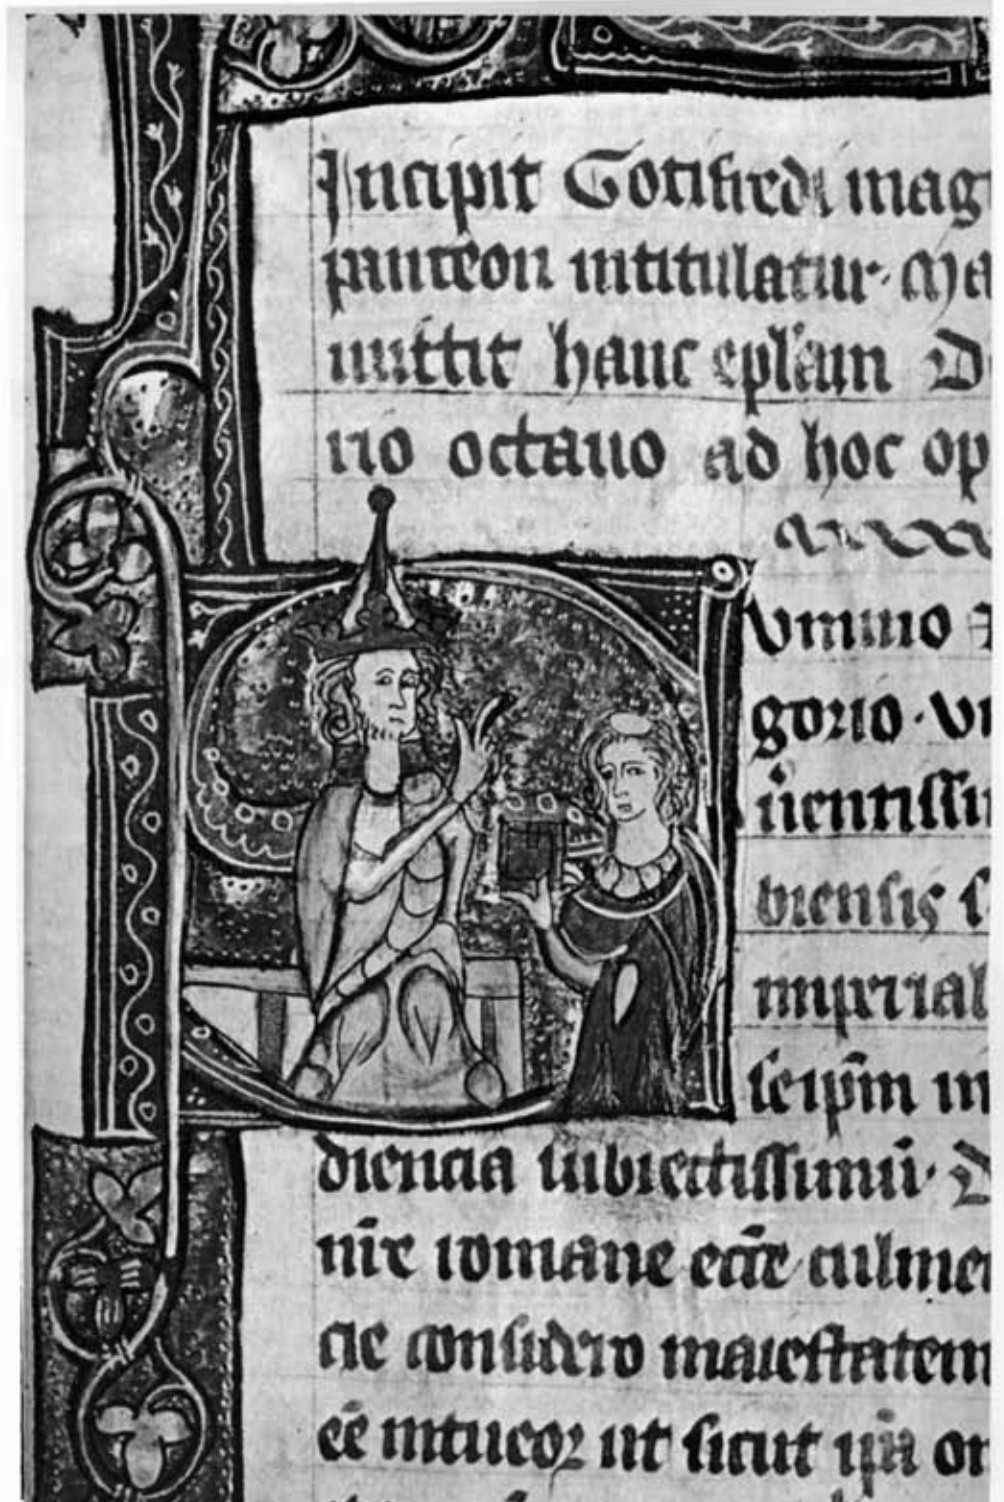 Incipit Gotifredi mag
panteon intitulatur · Ma
mittit hanc eplam D
no octauo ad hoc op
Domino
gorio · vi
uentissi
biensis s
imperial
seipm in
diencia subiectissimu · D
nire romane eccte culme
cie considero maiestatem
ee intueor ut sicut ipa or